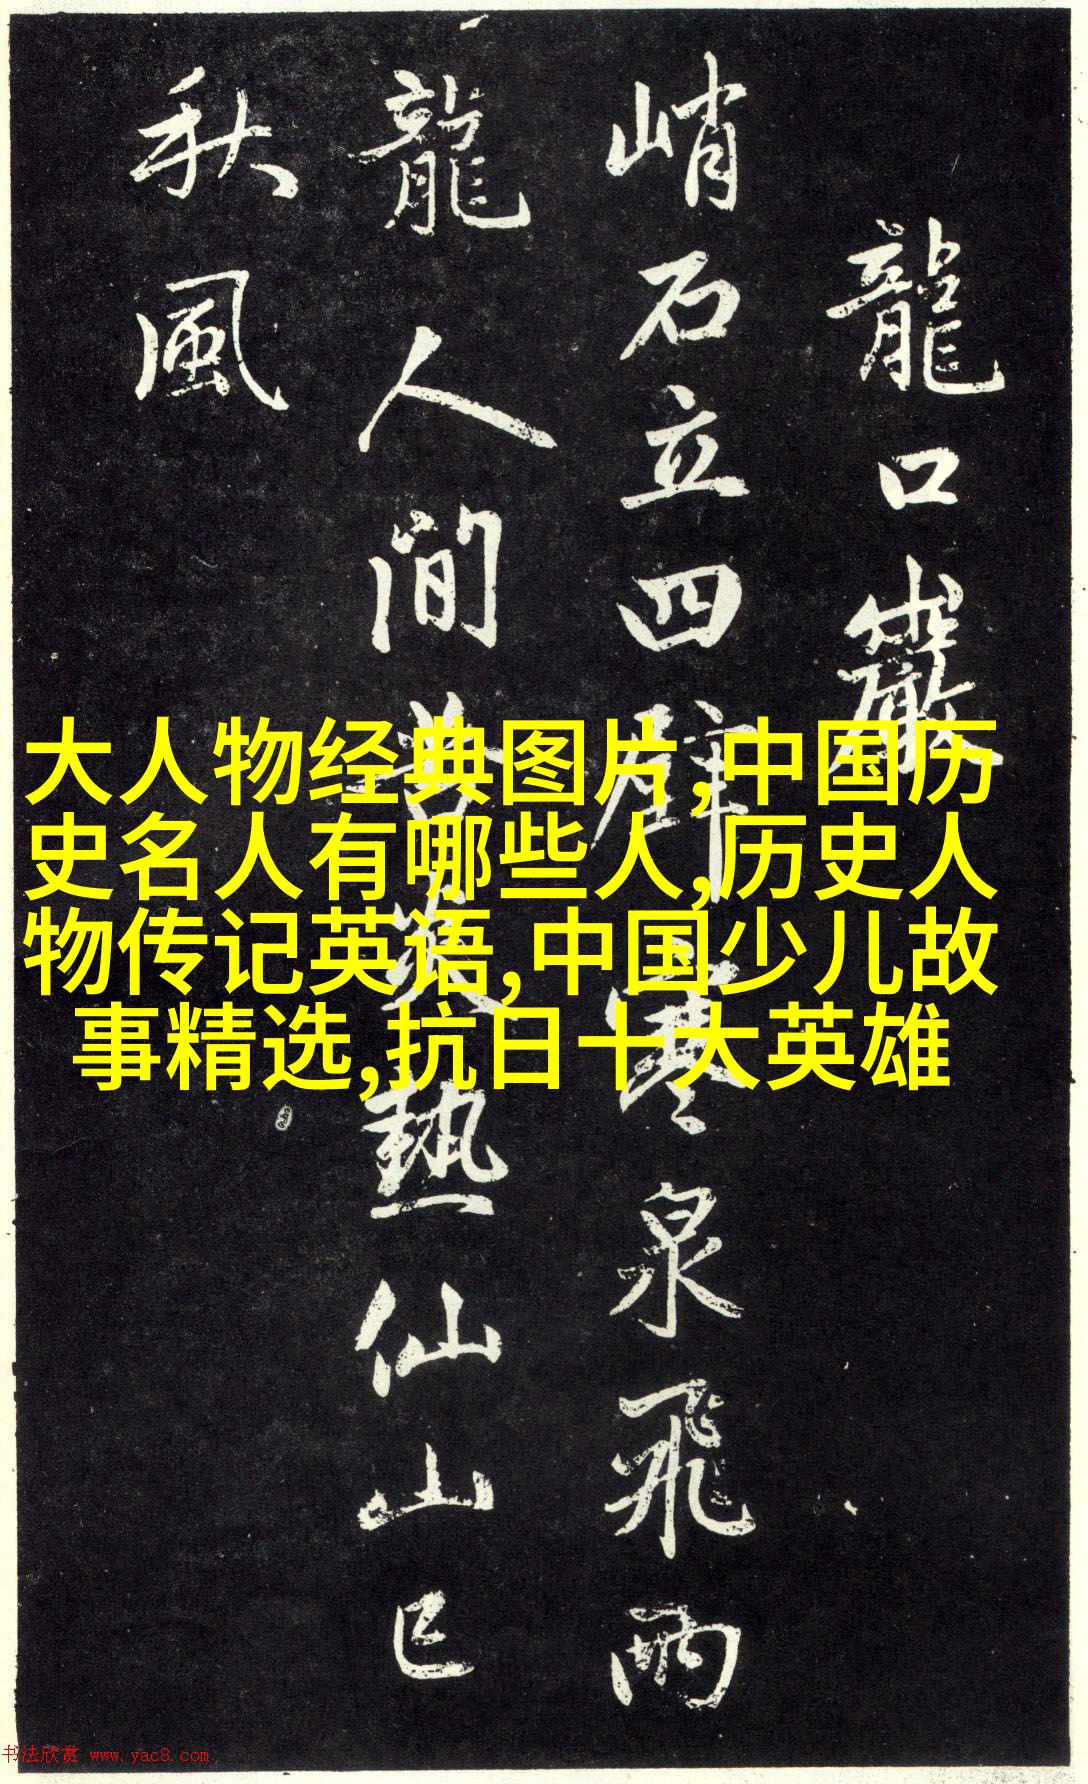 龍口巖
峭石立四壁寒泉飛兩
龍人間苦炎熱仙山已
秋風
大人物经典图片,中国历
史名人有哪些人,历史人
物传记英语,中国少儿故
事精选,抗日十大英雄
书法欣赏 www.yac8.com